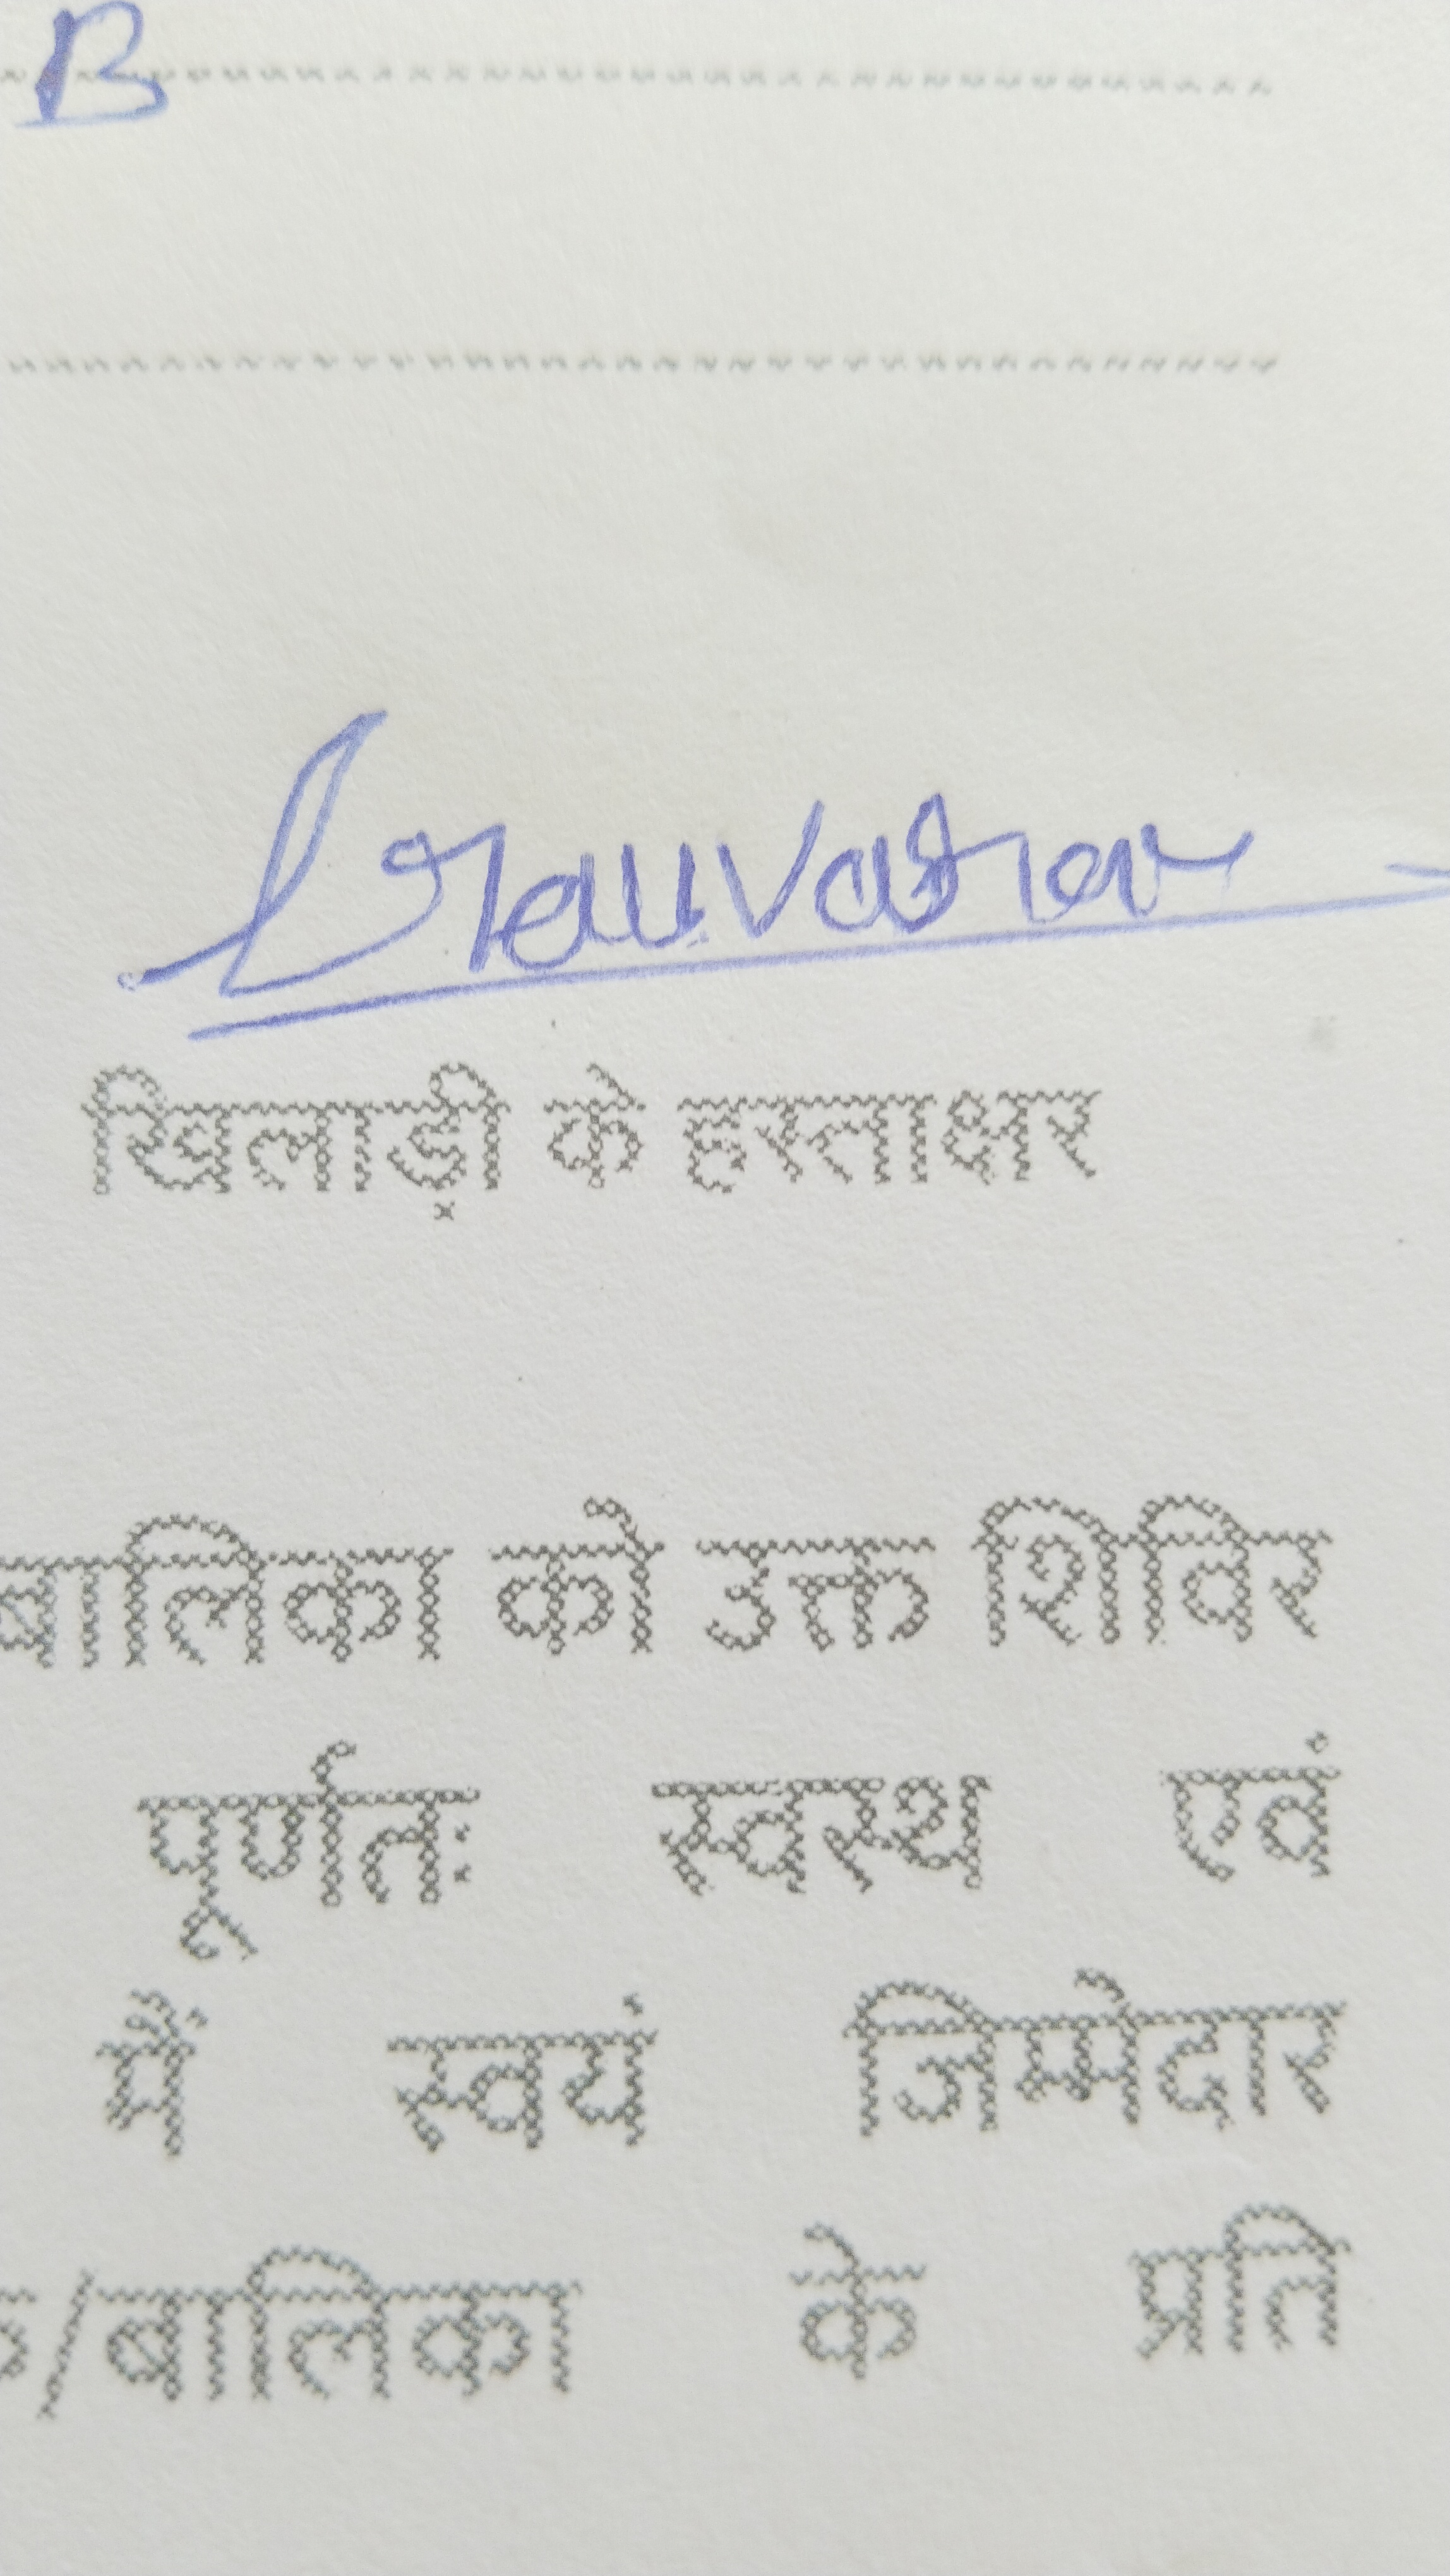 B
खिलाड़ी के हस्ताक्षर
बालिका को उक्त शिविर
पूर्णतः स्वस्थ एवं
में स्वयं जिम्मेदार
/बालिका के प्रति